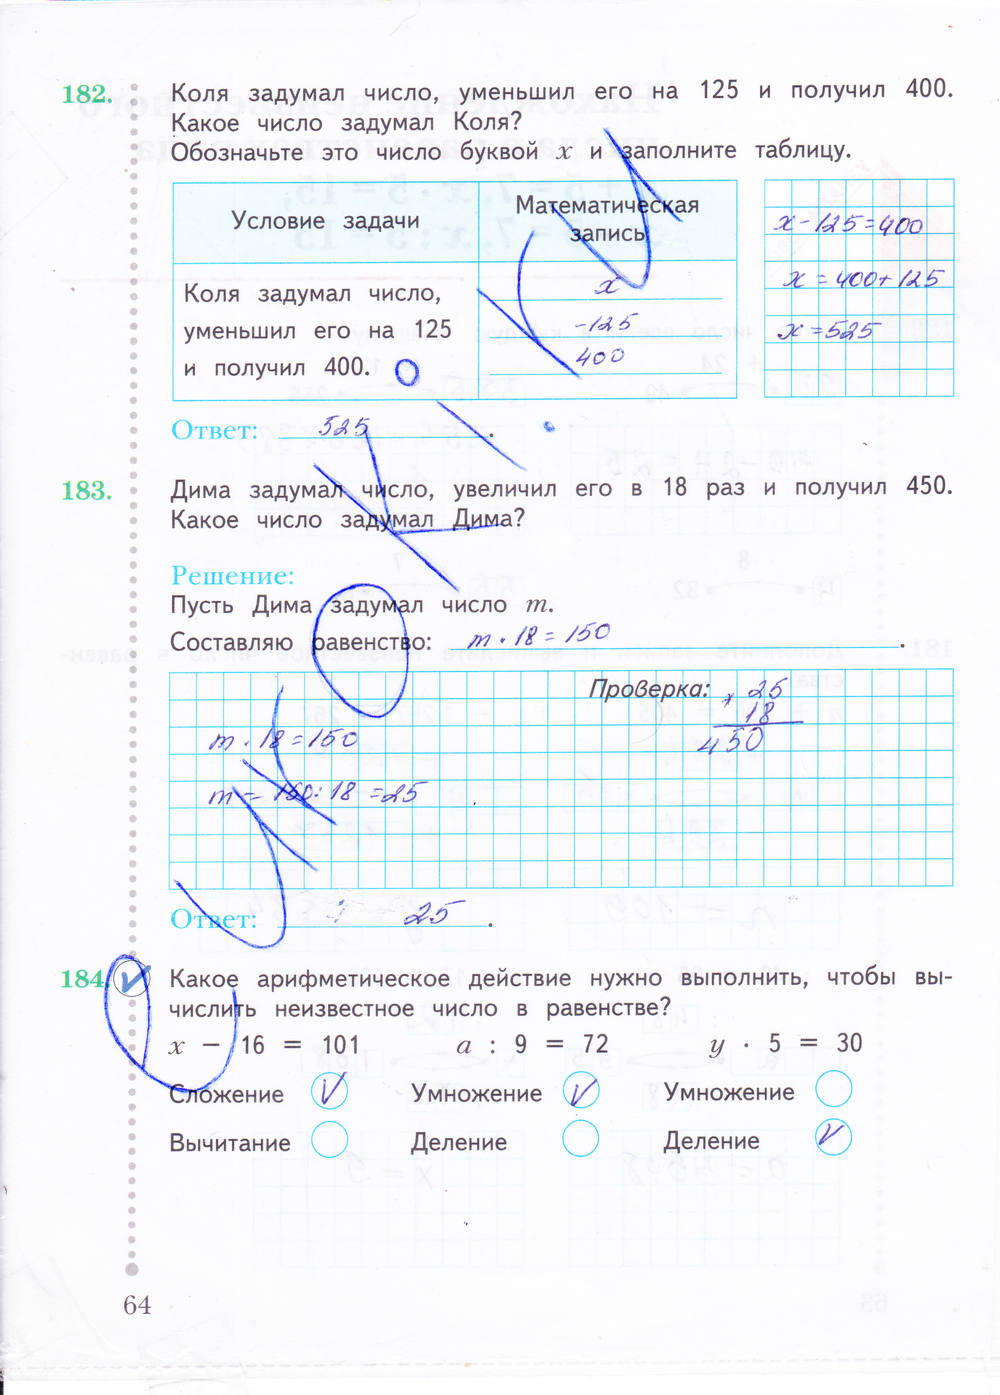 182. Коля задумал число, уменьшил его на 125 и получил 400.
Какое число задумал Коля?
Обозначьте это число буквой x и заполните таблицу.
Условие задачи
Математическая запись
Коля задумал число,
уменьшил его на 125
и получил 400.
x
-125
400
x - 125 = 400
x = 400 + 125
x = 525
Ответ: 525.
183. Дима задумал число, увеличил его в 18 раз и получил 450.
Какое число задумал Дима?
Решение:
Пусть Дима задумал число m.
Составляю равенство: m · 18 = 150.
Проверка: × 25
18
450
m · 18 = 150
m = 150 : 18 = 25
Ответ: 25.
184. Какое арифметическое действие нужно выполнить, чтобы вы-
числить неизвестное число в равенстве?
x − 16 = 101 a : 9 = 72 y · 5 = 30
Сложение Умножение Умножение
Вычитание Деление Деление
64